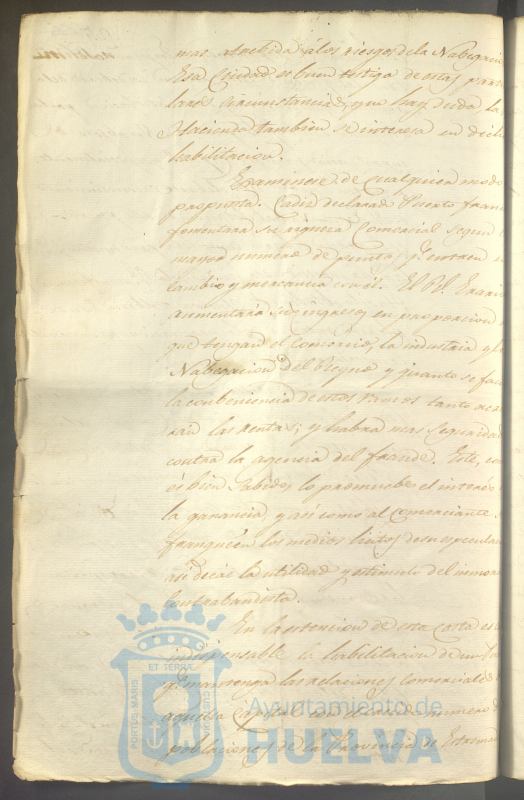 mas atrebida á los riesgos de la Nabegacio
Esa Ciudad es buen testigo de estas
lares circunstancias, que hay desde la
Hacienda tambien se interesa en dich
habilitacion.
Examinese de qualquier modo
propuesta. Cadiz declarado Puerto fran
fomentara su riqueza Comercial segun
mayor numero de puntos qe. entren
cambio y mercancia con él. El Rl. Erario
aumentará sus ingresos en proporcion
que tengan el Comercio, la industria y
Nabegacion del Reyno y quanto se faci
la conbeniencia de estos tanto
ran las rentas; y habrá mas seguridad
contra la agencia del fraude. Este, co
es bien sabido, lo promueve el interés
la ganancia y asi como al Comerciante
franqueen los medios licitos de su especulac
asi decae la utilidad y estimulo del inmoral
Contrabandista.
En la extencion de esta Costa es
indispensable la habilitacion de un
qe. mantenga las relaciones comerciales
aquella Capital con el numero
poblaciones de la Provincia de Estrema
PORTUS MARIS
ET TERRÆ
CUSTODIA
Ayuntamiento de
HUELVA